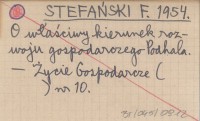 8 STEFAŃSKI F. 1954.
O właściwy kierunek roz-
woju gospodarczego Podhala.
— Życie Gospodarcze (
) nr 10.